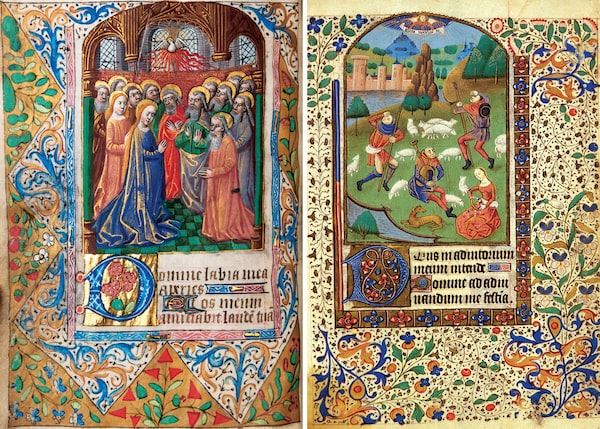 Domine labia mea
aperies
Et os meum
annuciabit laude tua
Deus in adiutorium
meum intende
Domine ad adiu
uandum me festia